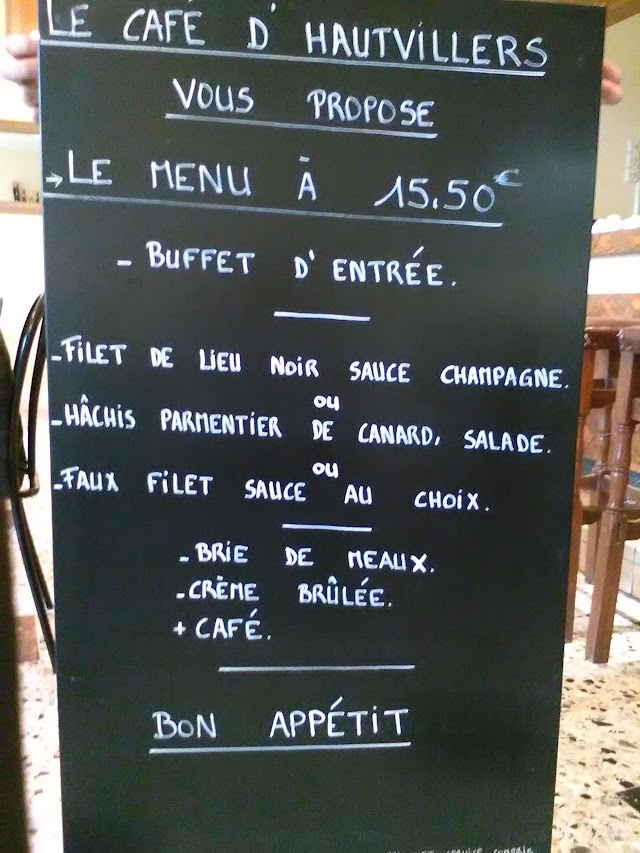 LE CAFÉ D' HAUTVILLERS
VOUS PROPOSE
→LE MENU À 15.50€
- BUFFET D' ENTRÉE.
-FILET DE LIEU NOIR SAUCE CHAMPAGNE.
OU
-HÂCHIS PARMENTIER DE CANARD, SALADE.
OU
-FAUX FILET SAUCE AU CHOIX.
-BRIE DE MEAUX.
-CRÈME BRÛLÉE.
+ CAFÉ.
BON APPÉTIT
service compris.